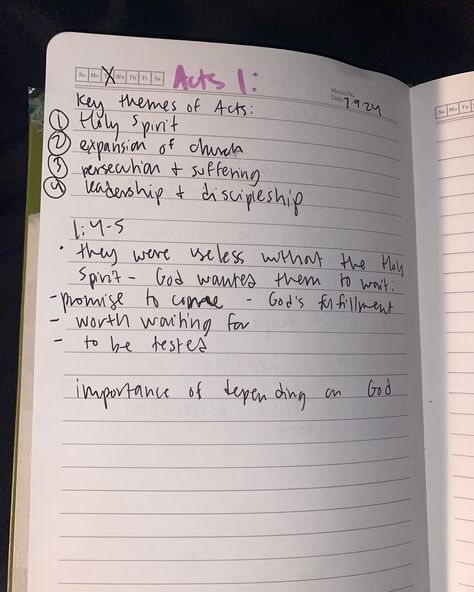 Su Mo Tu We Th Fr Sa
Acts 1:
Memo No.
Date 7.9.24
Key themes of Acts:
① Holy Spirit
② expansion of church
③ persecution + suffering
④ leadership + discipleship
1:4-5
• they were useless without the Holy
Spirit - God wanted them to wait:
- promise to come - God's fulfillment
- worth waiting for
- to be tested
importance of depending on God
Su Mo Tu